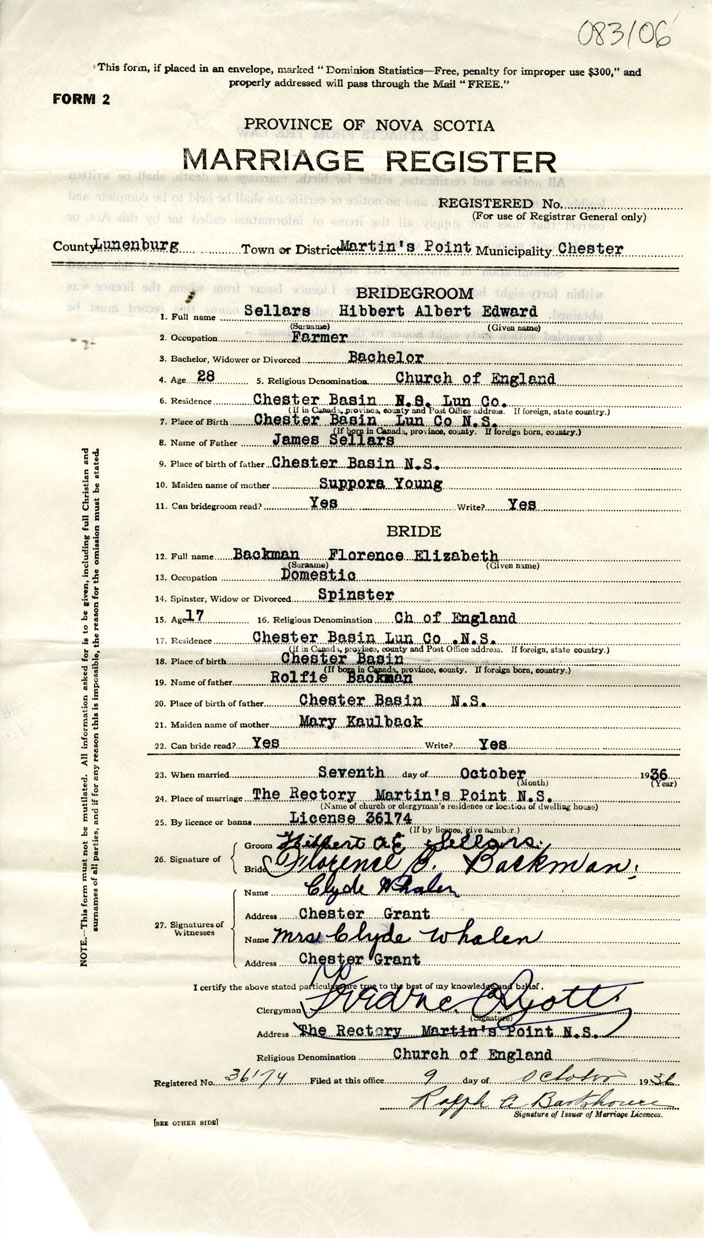 083106
This form, if placed in an envelope, marked "Dominion Statistics—Free, penalty for improper use $300," and
properly addressed will pass through the Mail "FREE."
FORM 2
PROVINCE OF NOVA SCOTIA
MARRIAGE REGISTER
REGISTERED No.
(For use of Registrar General only)
County Lunenburg Town or District Martin's Point Municipality Chester
BRIDEGROOM
1. Full name Sellars Hibbert Albert Edward
(Surname) (Given name)
2. Occupation Farmer
3. Bachelor, Widower or Divorced Bachelor
4. Age 28 5. Religious Denomination Church of England
6. Residence Chester Basin N.S. Lun Co.
(If in Canada, province, county and Post Office address. If foreign, state country.)
7. Place of Birth Chester Basin Lun Co N.S.
(If born in Canada, province, county. If foreign born, country.)
8. Name of Father James Sellars
9. Place of birth of father Chester Basin N.S.
10. Maiden name of mother Suppora Young
11. Can bridegroom read? Yes Write? Yes
BRIDE
12. Full name Backman Florence Elizabeth
(Surname) (Given name)
13. Occupation Domestic
14. Spinster, Widow or Divorced Spinster
15. Age 17 16. Religious Denomination Ch of England
17. Residence Chester Basin Lun Co .N.S.
(If in Canada, province, county and Post Office address. If foreign, state country.)
18. Place of birth Chester Basin
(If born in Canada, province, county. If foreign born, country.)
19. Name of father Rolfie Backman
20. Place of birth of father Chester Basin N.S.
21. Maiden name of mother Mary Kaulback
22. Can bride read? Yes Write? Yes
23. When married Seventh day of October 1936
(Month) (Year)
24. Place of marriage The Rectory Martin's Point N.S.
(Name of church or clergyman's residence or location of dwelling house)
25. By licence or banns License 36174
(If by licence, give number.)
26. Signature of
Groom Hibbert A E Sellars.
Bride Florence E. Backman.
27. Signatures of Witnesses
Name Clyde Whalen
Address Chester Grant
Name Mrs Clyde Whalen
Address Chester Grant
I certify the above stated particulars are true to the best of my knowledge and belief.
Clergyman
(Signature)
Address The Rectory Martin's Point N.S.
Religious Denomination Church of England
Registered No. 36174 Filed at this office 9 day of October 1936
Ralph A
Signature of Issuer of Marriage Licences.
[SEE OTHER SIDE]
NOTE.—This form must not be mutilated. All information asked for is to be given, including full Christian and
surnames of all parties, and if for any reason this is impossible, the reason for the omission must be stated.